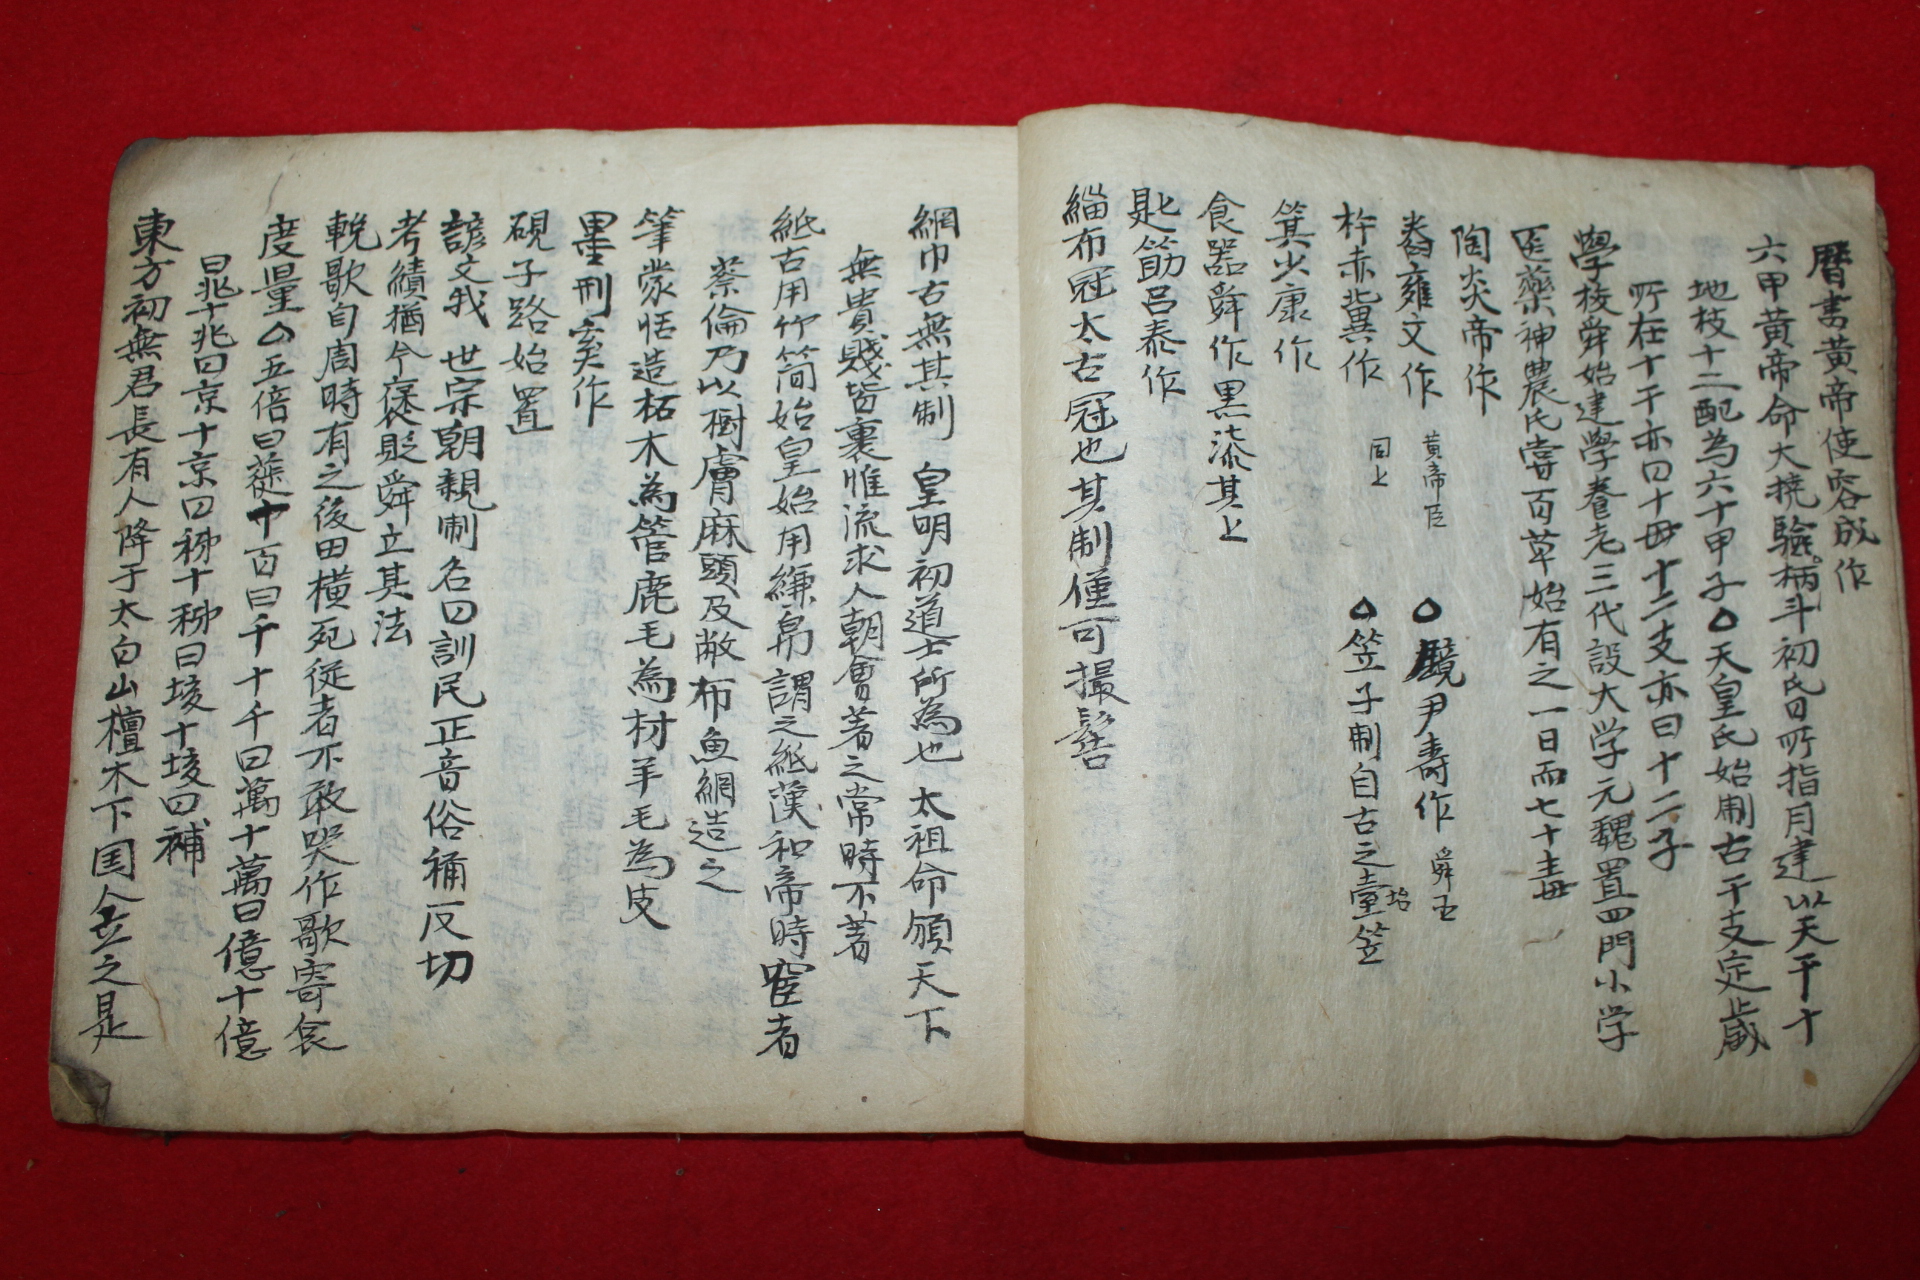 曆書黃帝使容成作
六甲黃帝命大撓驗柄斗初昏所指月建以天干十
地枝十二配為六十甲子○天皇氏始制古干支定歲
所在十干亦曰十母十二支亦曰十二子
學校舜始建學養老三代設大学元魏置四門小学
医藥神農氏嘗百草始有之一日而七十毒
陶炎帝作
舂雍文作 黃帝臣 ○ 尹壽作 舜臣
杵赤冀作 同上 ○笠子制自古之臺笠
箕少康作
食器舜作黑漆其上
匙筯呂泰作
緇布冠太古冠也其制僅可撮髻
網巾古無其制 皇明初道士所為也太祖命頒天下
無貴賤皆裹惟流求人朝會著之常時不著
紙古用竹簡始皇始用縑帛謂之紙漢和帝時宦者
蔡倫乃以樹膚麻頭及敝布魚網造之
筆蒙恬造柘木為管鹿毛為材羊毛為皮
墨刑夷作
硯子路始置
諺文我 世宗朝親制名曰訓民正音俗稱反切
考績猶今襃貶舜立其法
輓歌自周時有之後田橫死從者不敢哭作歌寄哀
度量○五倍曰蓰十百曰千十千曰萬十萬曰億十億
曰兆十兆曰京十京曰秭十秭曰垓十垓曰補
東方初無君長有人降于太白山檀木下国人立之是